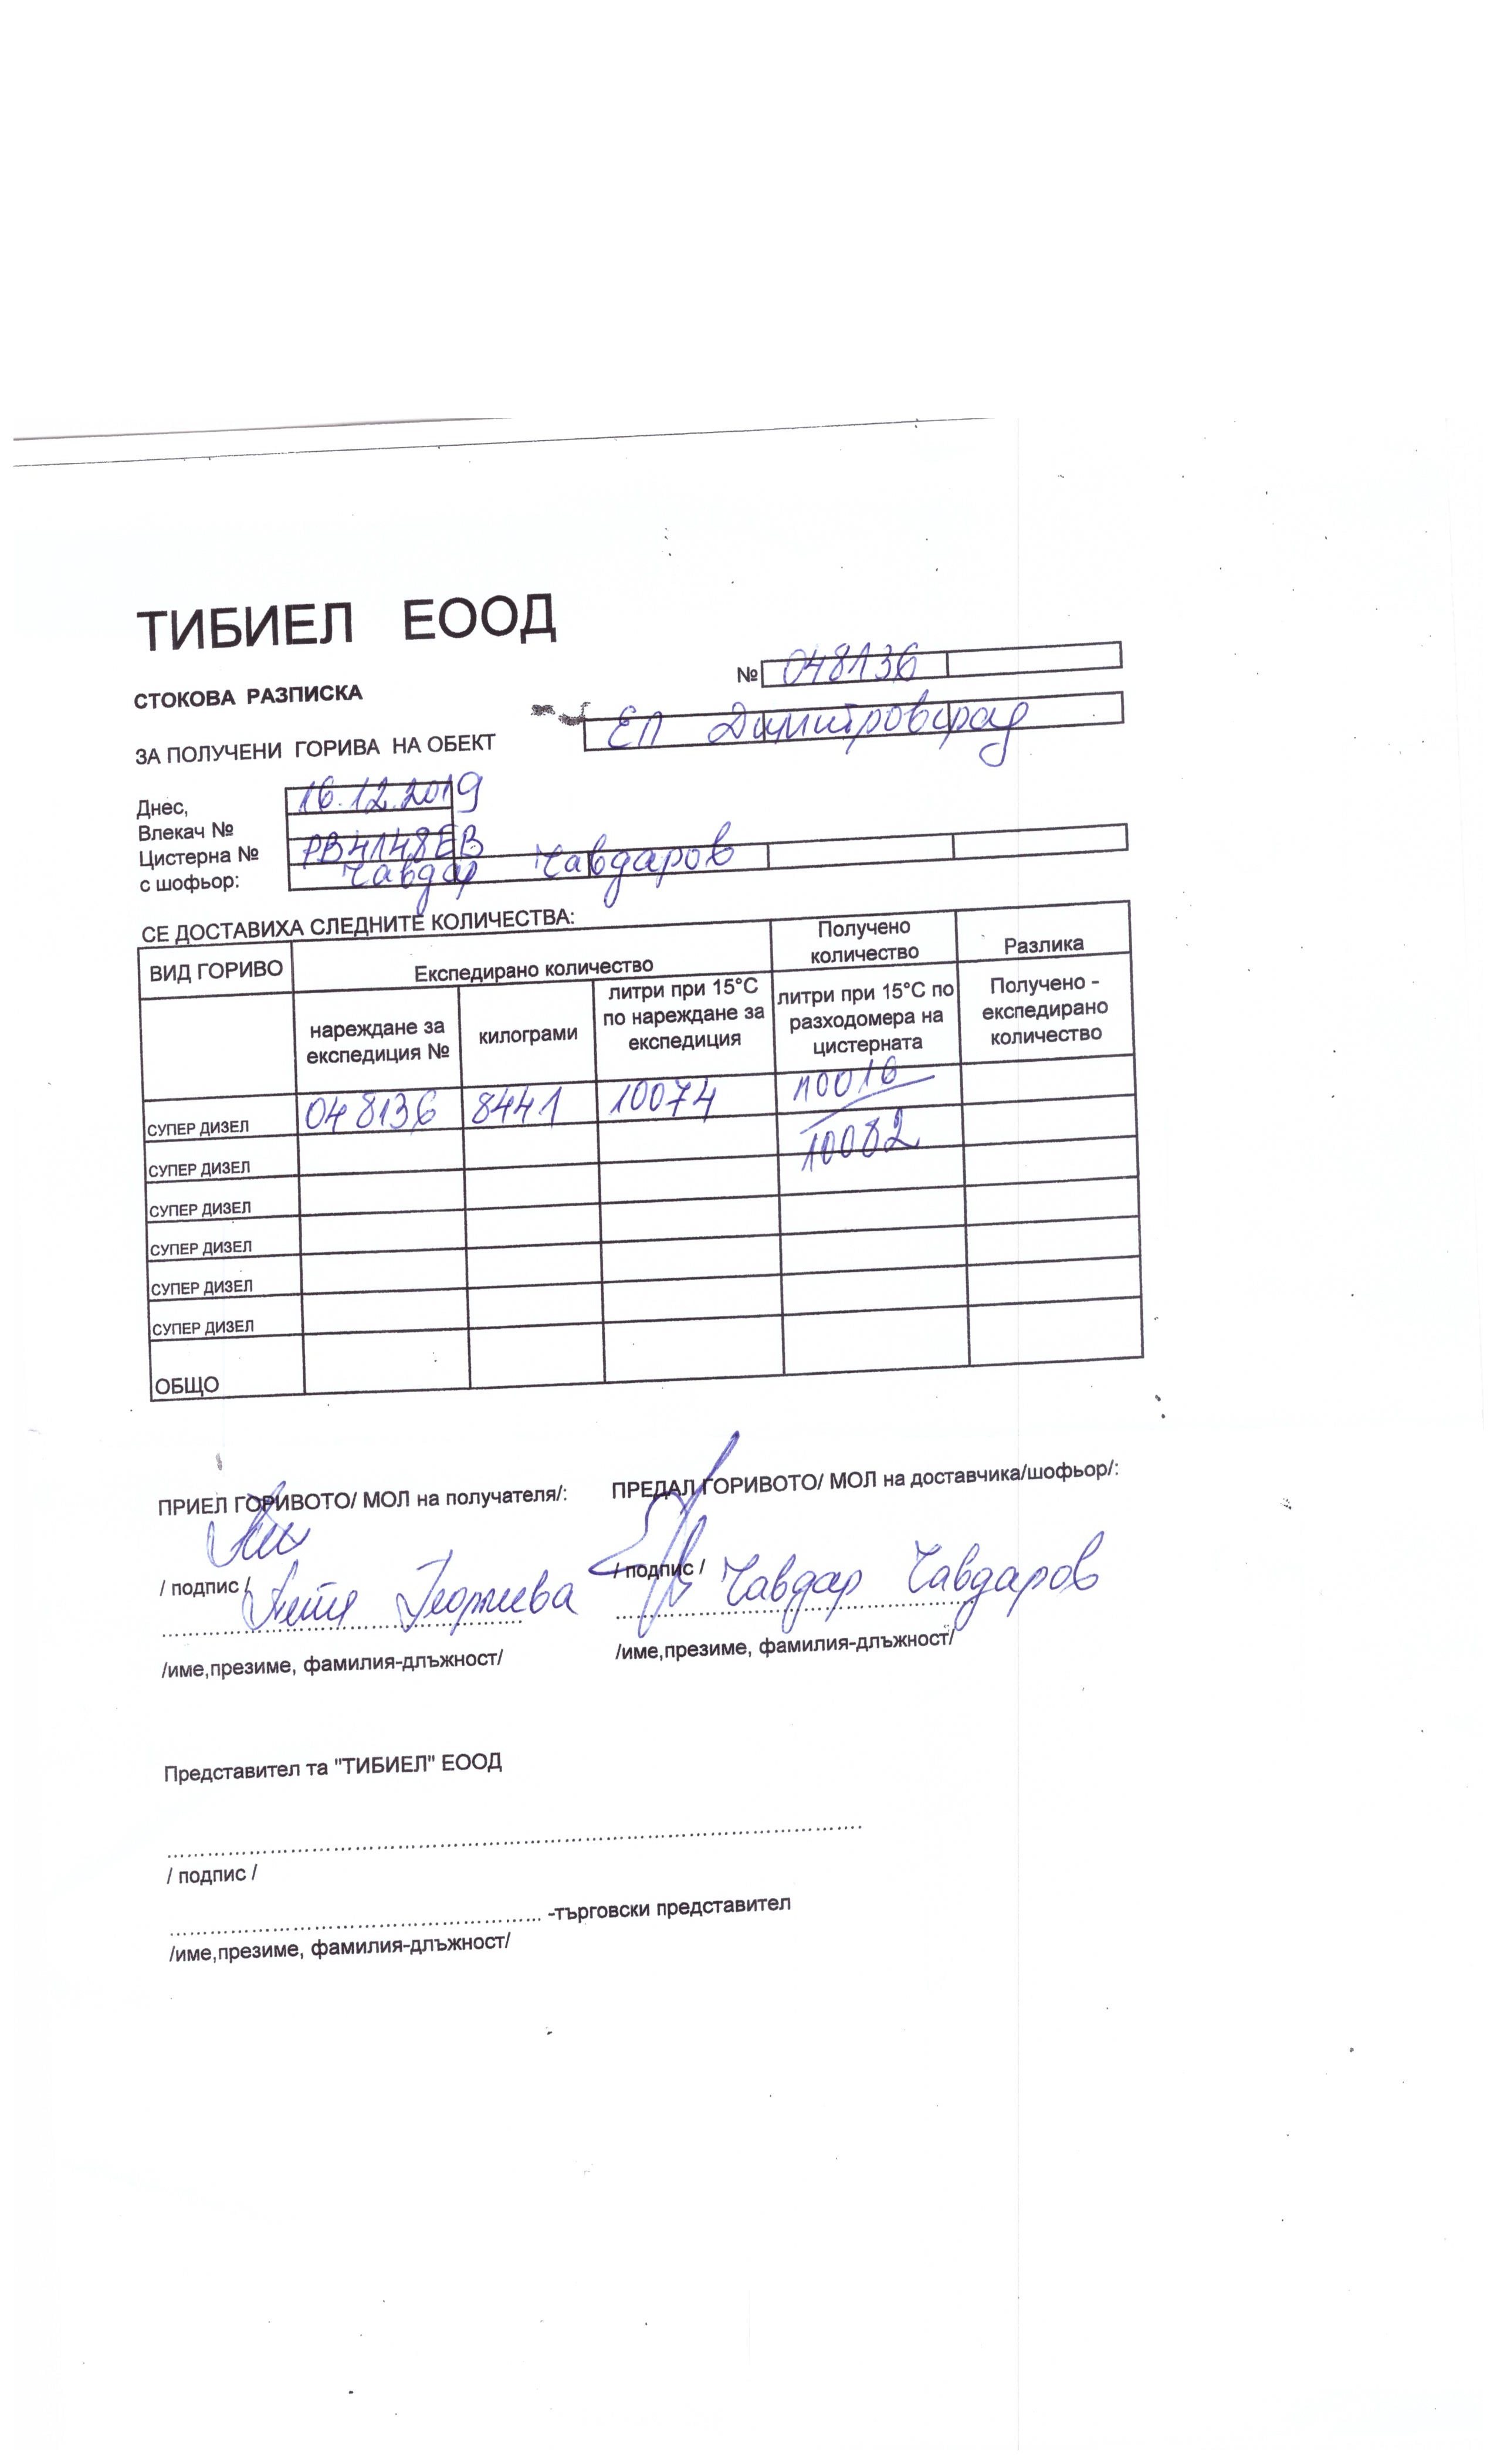 ТИБИЕЛ ЕООД
№ 048136
СТОКОВА РАЗПИСКА
ЗА ПОЛУЧЕНИ ГОРИВА НА ОБЕКТ ЕП Димитровград
Днес, 16.12.2019
Влекач №
Цистерна № РВ4148ЕВ
с шофьор: Чавдар Чавдаров
СЕ ДОСТАВИХА СЛЕДНИТЕ КОЛИЧЕСТВА:
ВИД ГОРИВО Експедирано количество Получено количество Разлика
нареждане за експедиция № килограми литри при 15°С по нареждане за експедиция литри при 15°С по разходомера на цистерната Получено - експедирано количество
СУПЕР ДИЗЕЛ 048136 8441 10074 10016
СУПЕР ДИЗЕЛ 10082
СУПЕР ДИЗЕЛ
СУПЕР ДИЗЕЛ
СУПЕР ДИЗЕЛ
СУПЕР ДИЗЕЛ
ОБЩО
ПРИЕЛ ГОРИВОТО/ МОЛ на получателя/: ПРЕДАЛ ГОРИВОТО/ МОЛ на доставчика/шофьор/:
/ подпис / Георгиева / подпис / Чавдар Чавдаров
/име,презиме, фамилия-длъжност/ /име,презиме, фамилия-длъжност/
Представител та "ТИБИЕЛ" ЕООД
/ подпис /
-търговски представител
/име,презиме, фамилия-длъжност/